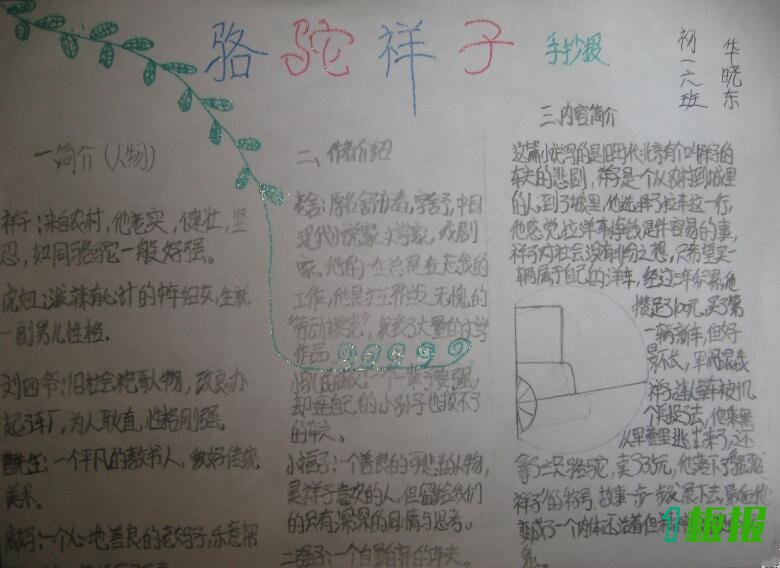 骆驼祥子 手抄报
初一六班
华晓东
一、简介（人物）
祥子：来自农村，他老实，健壮，坚
忍，如同骆驼一般好强。
虎妞：泼辣有心计的中年妇女，生就
一副男儿性格。
刘四爷：旧社会袍哥人物，改良办
起了车厂，为人耿直，性格刚强。
曹先生：一个平凡的教书人，爱好传统
美术。
高妈：一个心地善良的老妈子，乐意帮
二、作者介绍
老舍：原名舒庆春，字舍予，中国
现代小说家，文学家，戏剧
家。他的一生总是在忘我的
工作，他是文艺界当之无愧的
“劳动模范”，发表了大量的文学
作品。
小马的祖父：一辈子要强，
却连自己的小孙子也救不了
的车夫。
小福子：一个善良的可悲的人物，
是祥子喜欢的人，但留给我们
的只有深深的同情与思考。
二强子：一个自暴自弃的车夫。
三、内容简介
这篇小说写的是旧时代北京有个叫祥子的
车夫的悲剧，祥子是个从农村到城里
的人，到了城里，他选择了拉车这一行，
他感觉拉洋车挣钱是件容易的事，
祥子对社会没有非份之想，只希望买一
辆属于自己的洋车，经过三年积累，他
攒足了100元，买了第
一辆新车，但好
景不长，军阀混战
祥子连人带车被抓
个兵拐了去，他乘黑
从军营里逃出来了，还
拿了三只骆驼，卖了35元，他落下了“骆驼
祥子”的称号，故事一步步发展下去，最后他
变成了一个肉体还活着但精神
鬼。
板报